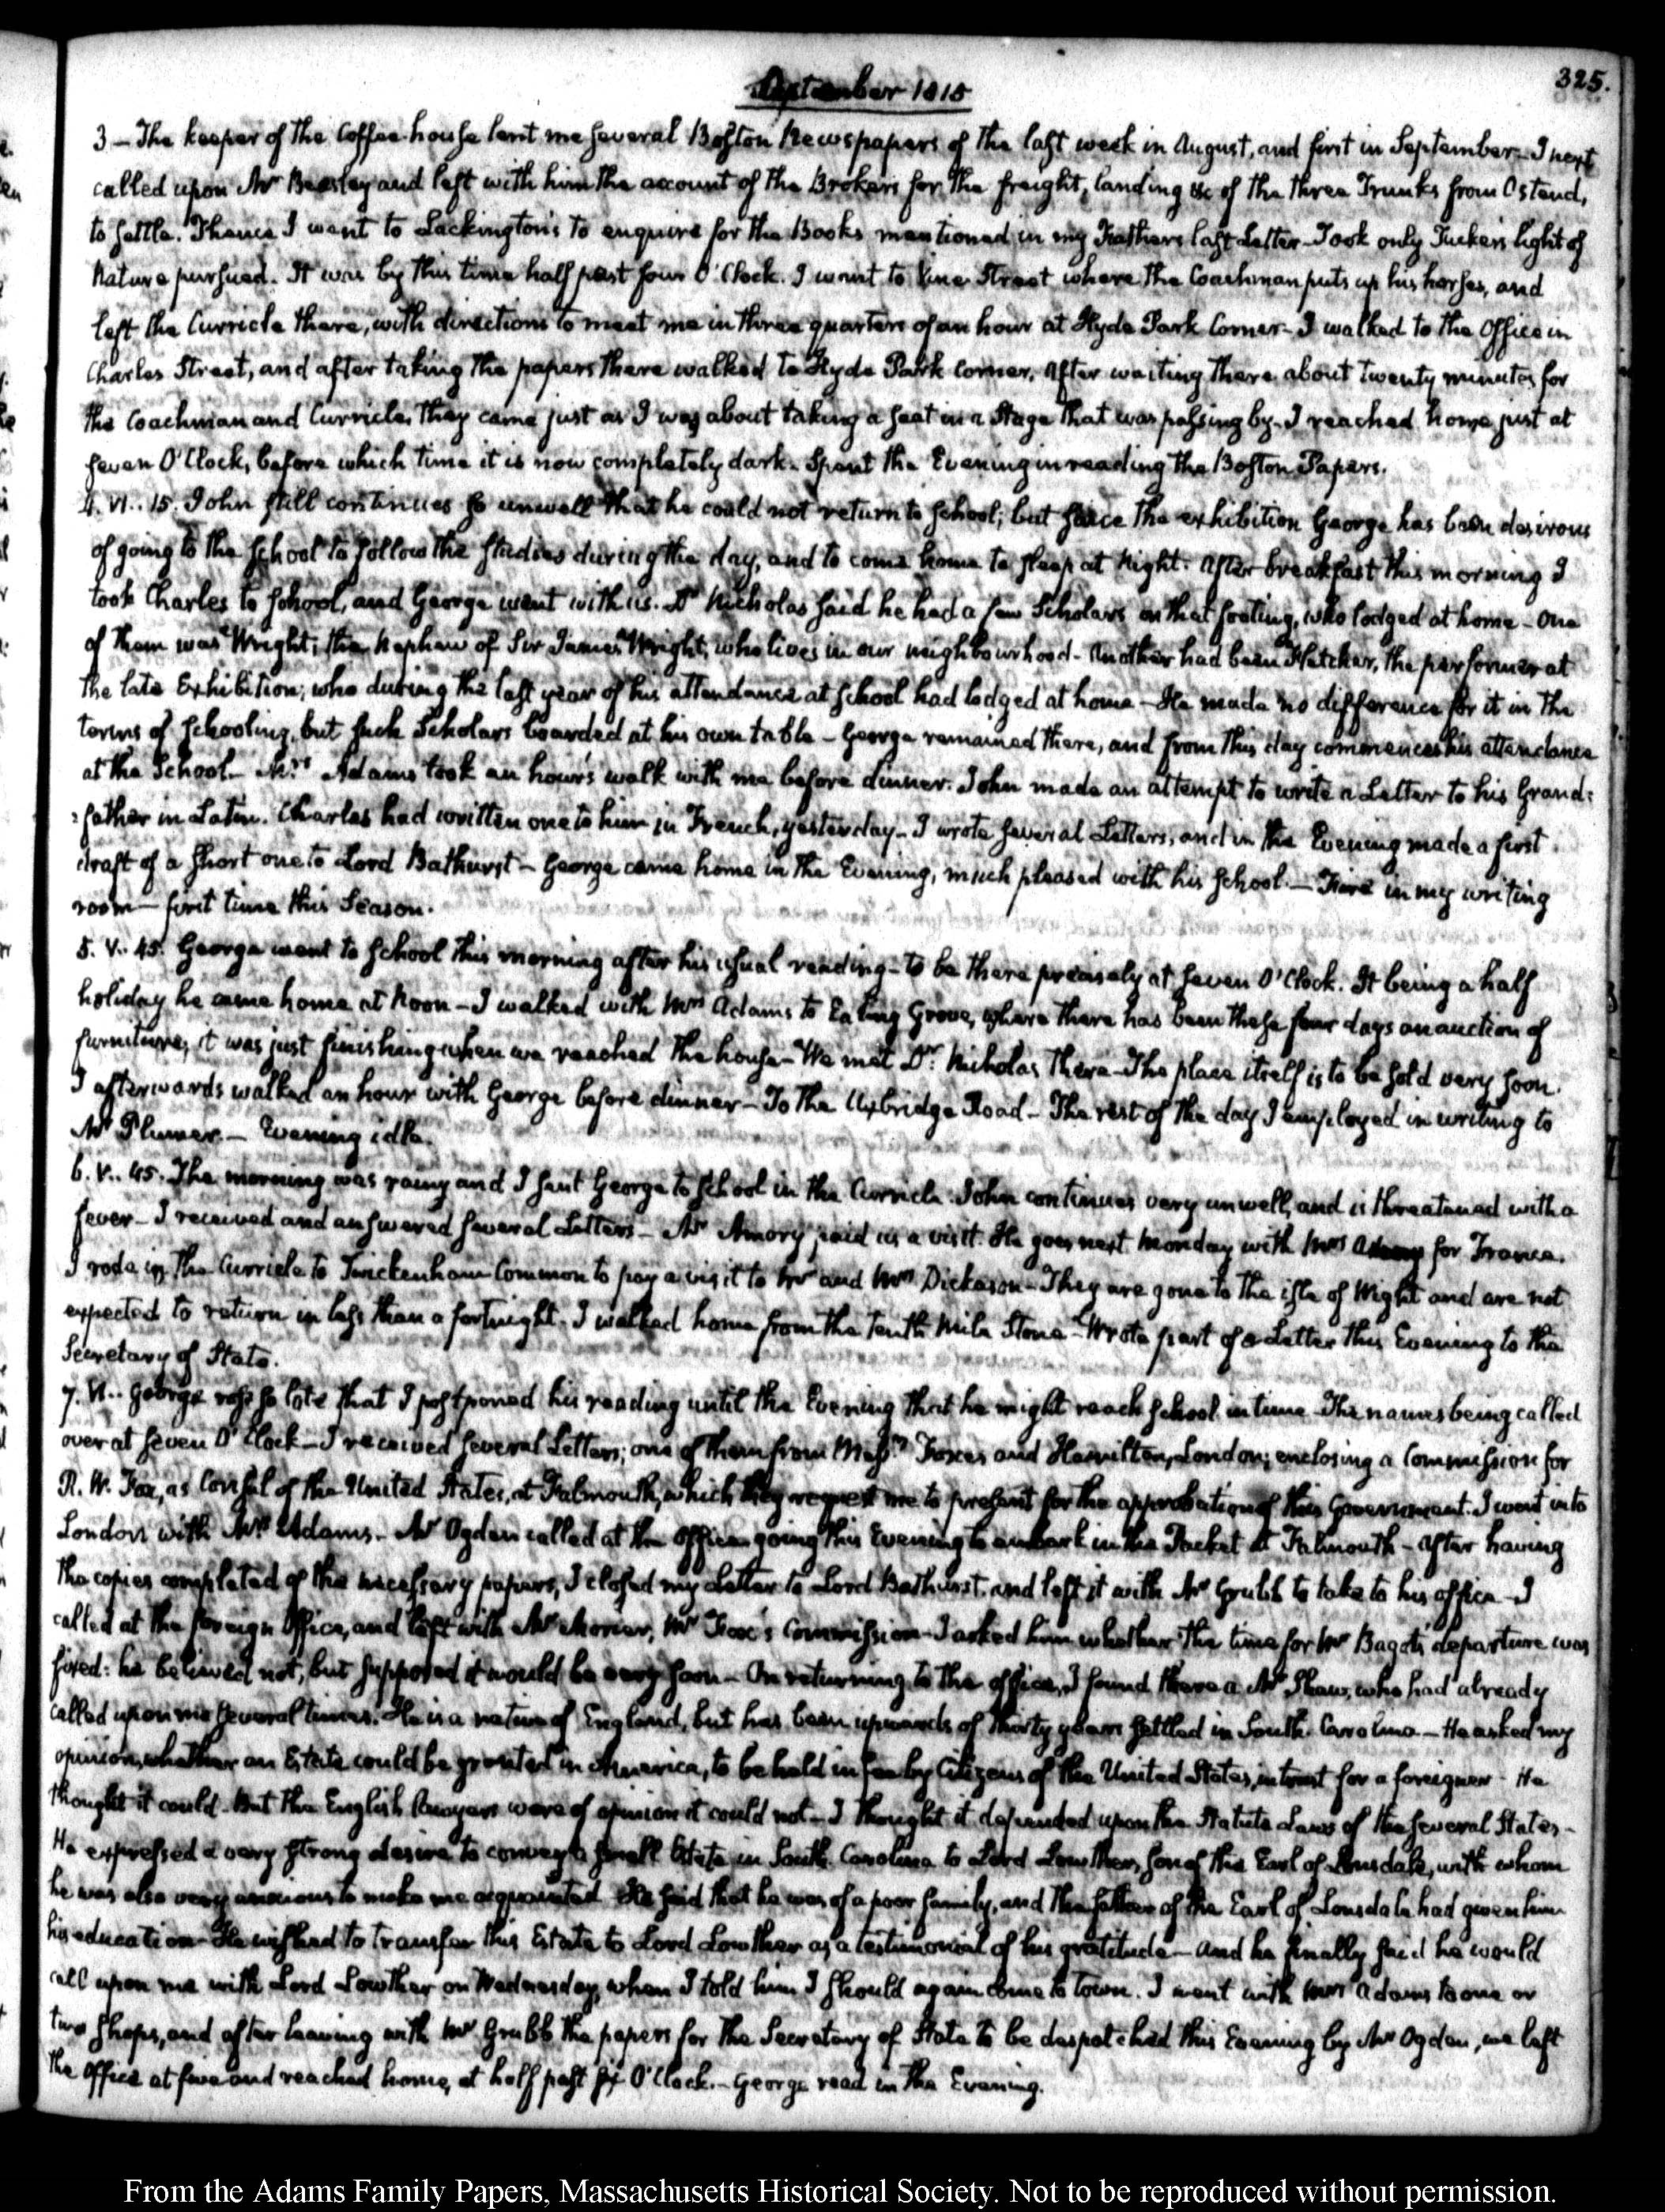 325.
September 1815
3 – The keeper of the Coffee-house lent me several Boston Newspapers of the last week in August, and first in September – I next
called upon Mr Beasley and left with him the account of the Brokers for the freight, landing &c of the three Trunks from Ostend,
to settle. Thence I went to Lackington's to enquire for the Books mentioned in my Father's last Letter – Took only Tucker's light of
Nature pursued. It was by this time half past four O'Clock. I went to Vine Street where the Coachman puts up his horses, and
left the Curricle there, with directions to meet me in three quarters of an hour at Hyde Park Corner – I walked to the Office in
Charles Street, and after taking the papers there walked to Hyde Park Corner. After waiting there about twenty minutes for
the Coachman and Curricle, they came just as I was about taking a seat in a Stage that was passing by. I reached home just at
seven O'Clock, before which time it is now completely dark. Spent the Evening in reading the Boston Papers.
4. VI.. 15. John still continues so unwell that he could not return to School; but since the exhibition George has been desirous
of going to the School to follow the studies during the day, and to come home to sleep at Night. After breakfast this morning I
took Charles to School, and George went with us. Dr Nicholas said he had a few Scholars on that footing, who lodged at home – One
of them was Wright, the Nephew of Sir James Wright, who lives in our neighbourhood – Another had been Hatcher, the performer at
the late Exhibition; who during the last year of his attendance at School had lodged at home – He made no difference for it in the
terms of Schooling, but such Scholars boarded at his own table – George remained there, and from this day commences his attendance
at the School – Mrs Adams took an hour's walk with me before dinner. John made an attempt to write a Letter to his Grand:
:father in Latin. Charles had written one to him in French, yesterday – I wrote several Letters, and in the Evening made a first
draft of a short one to Lord Bathurst – George came home in the Evening, much pleased with his School. – Fire in my writing
room – first time this Season.
5. V.. 45. George went to School this morning after his usual reading – to be there precisely at seven O'Clock. It being a half
holiday he came home at Noon – I walked with Mrs Adams to Ealing Grove, where there has been these four days an auction of
furniture; it was just finishing when we reached the house – We met Dr. Nicholas there – The place itself is to be sold very soon.
I afterwards walked an hour with George before dinner – To the Uxbridge Road – The rest of the day I employed in writing to
Mr Plumer. – Evening idle.
6. V.. 45. The morning was rainy and I sent George to School in the Curricle. John continues very unwell, and is threatened with a
fever – I received and answered several Letters – Mr Amory paid us a visit. He goes next Monday with Mrs for France.
I rode in the Curricle to Twickenham Common to pay a visit to Mr and Mrs Dickason – They are gone to the isle of Wight and are not
expected to return in less than a fortnight. I walked home from the tenth Mile Stone – Wrote part of a Letter this Evening to the
Secretary of State.
7. VI.. George rose so late that I postponed his reading until the Evening that he might reach School in time – The names being called
over at seven O'Clock – I received several Letters; one of them from Messrs Foxes and Hamilton, London; enclosing a Commission for
R. W. Fox, as Consul of the United States, at Falmouth, which they request me to present for the approbation of this Government. I went into
London with Mrs Adams – Mr Ogden called at the Office going this Evening to embark in the Packet at Falmouth – After having
the copies completed of the necessary papers, I closed my Letter to Lord Bathurst, and left it with Mr Grubb to take to his office – I
called at the foreign Office, and left with Mr Morier, Mr Fox's Commission – I asked him whether the time for Mr Bagot's departure was
fixed: he believed not, but supposed it would be very soon – On returning to the office, I found there a Mr Shaw, who had already
called upon me several times. He is a native of England, but has been upwards of thirty years settled in South-Carolina – He asked my
opinion, whether an Estate could be granted in America, to be held in fee by Citizens of the United States, in trust for a foreigner – He
thought it could – But the English Lawyers were of opinion it could not – I thought it depended upon the Statute Laws of the several States –
He expressed a very strong desire to convey a small Estate in South Carolina to Lord Lowther, son of the Earl of Lonsdale, with whom
he was also very anxious to make me acquainted. He said that he was of a poor family, and the father of the Earl of Lonsdale had given him
his education – He wished to transfer this Estate to Lord Lowther as a testimonial of his gratitude – and he finally said he would
call upon me with Lord Lowther on Wednesday, when I told him I should again come to town. I went with Mrs Adams to one or
two Shops, and after leaving with Mr Grubb the papers for the Secretary of State to be despatched this Evening by Mr Ogden, we left
the Office at five and reached home, at half past six O'Clock. – George read in the Evening.
From the Adams Family Papers, Massachusetts Historical Society. Not to be reproduced without permission.